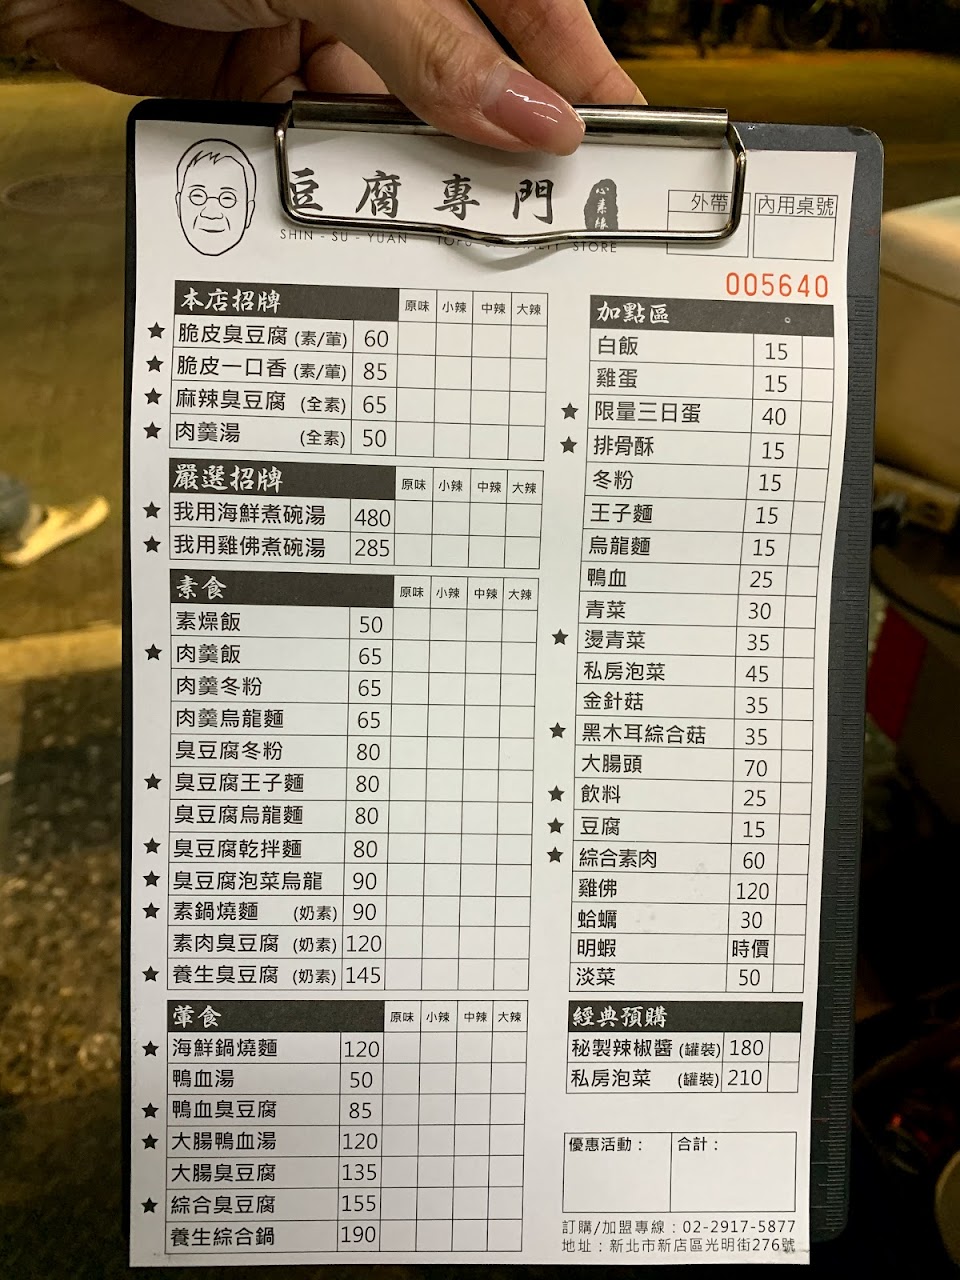 豆腐專門
心素緣
SHIN - SU - YUAN TOFU SPECIALTY STORE
外帶 內用桌號
005640
本店招牌 原味 小辣 中辣 大辣
★ 脆皮臭豆腐 (素/葷) 60
★ 脆皮一口香 (素/葷) 85
★ 麻辣臭豆腐 (全素) 65
★ 肉羹湯 (全素) 50
嚴選招牌 原味 小辣 中辣 大辣
★ 我用海鮮煮碗湯 480
★ 我用雞佛煮碗湯 285
素食 原味 小辣 中辣 大辣
素燥飯 50
★ 肉羹飯 65
肉羹冬粉 65
肉羹烏龍麵 65
臭豆腐冬粉 80
★ 臭豆腐王子麵 80
臭豆腐烏龍麵 80
★ 臭豆腐乾拌麵 80
★ 臭豆腐泡菜烏龍 90
★ 素鍋燒麵 (奶素) 90
素肉臭豆腐 (奶素) 120
★ 養生臭豆腐 (奶素) 145
葷食 原味 小辣 中辣 大辣
★ 海鮮鍋燒麵 120
鴨血湯 50
★ 鴨血臭豆腐 85
★ 大腸鴨血湯 120
大腸臭豆腐 135
★ 綜合臭豆腐 155
養生綜合鍋 190
加點區 。
白飯 15
雞蛋 15
★ 限量三日蛋 40
★ 排骨酥 15
冬粉 15
王子麵 15
烏龍麵 15
鴨血 25
青菜 30
★ 燙青菜 35
私房泡菜 45
金針菇 35
★ 黑木耳綜合菇 35
大腸頭 70
★ 飲料 25
★ 豆腐 15
★ 綜合素肉 60
雞佛 120
蛤蠣 30
明蝦 時價
淡菜 50
經典預購
秘製辣椒醬 (罐裝) 180
私房泡菜 (罐裝) 210
優惠活動： 合計：
訂購/加盟專線：02-2917-5877
地址：新北市新店區光明街276號